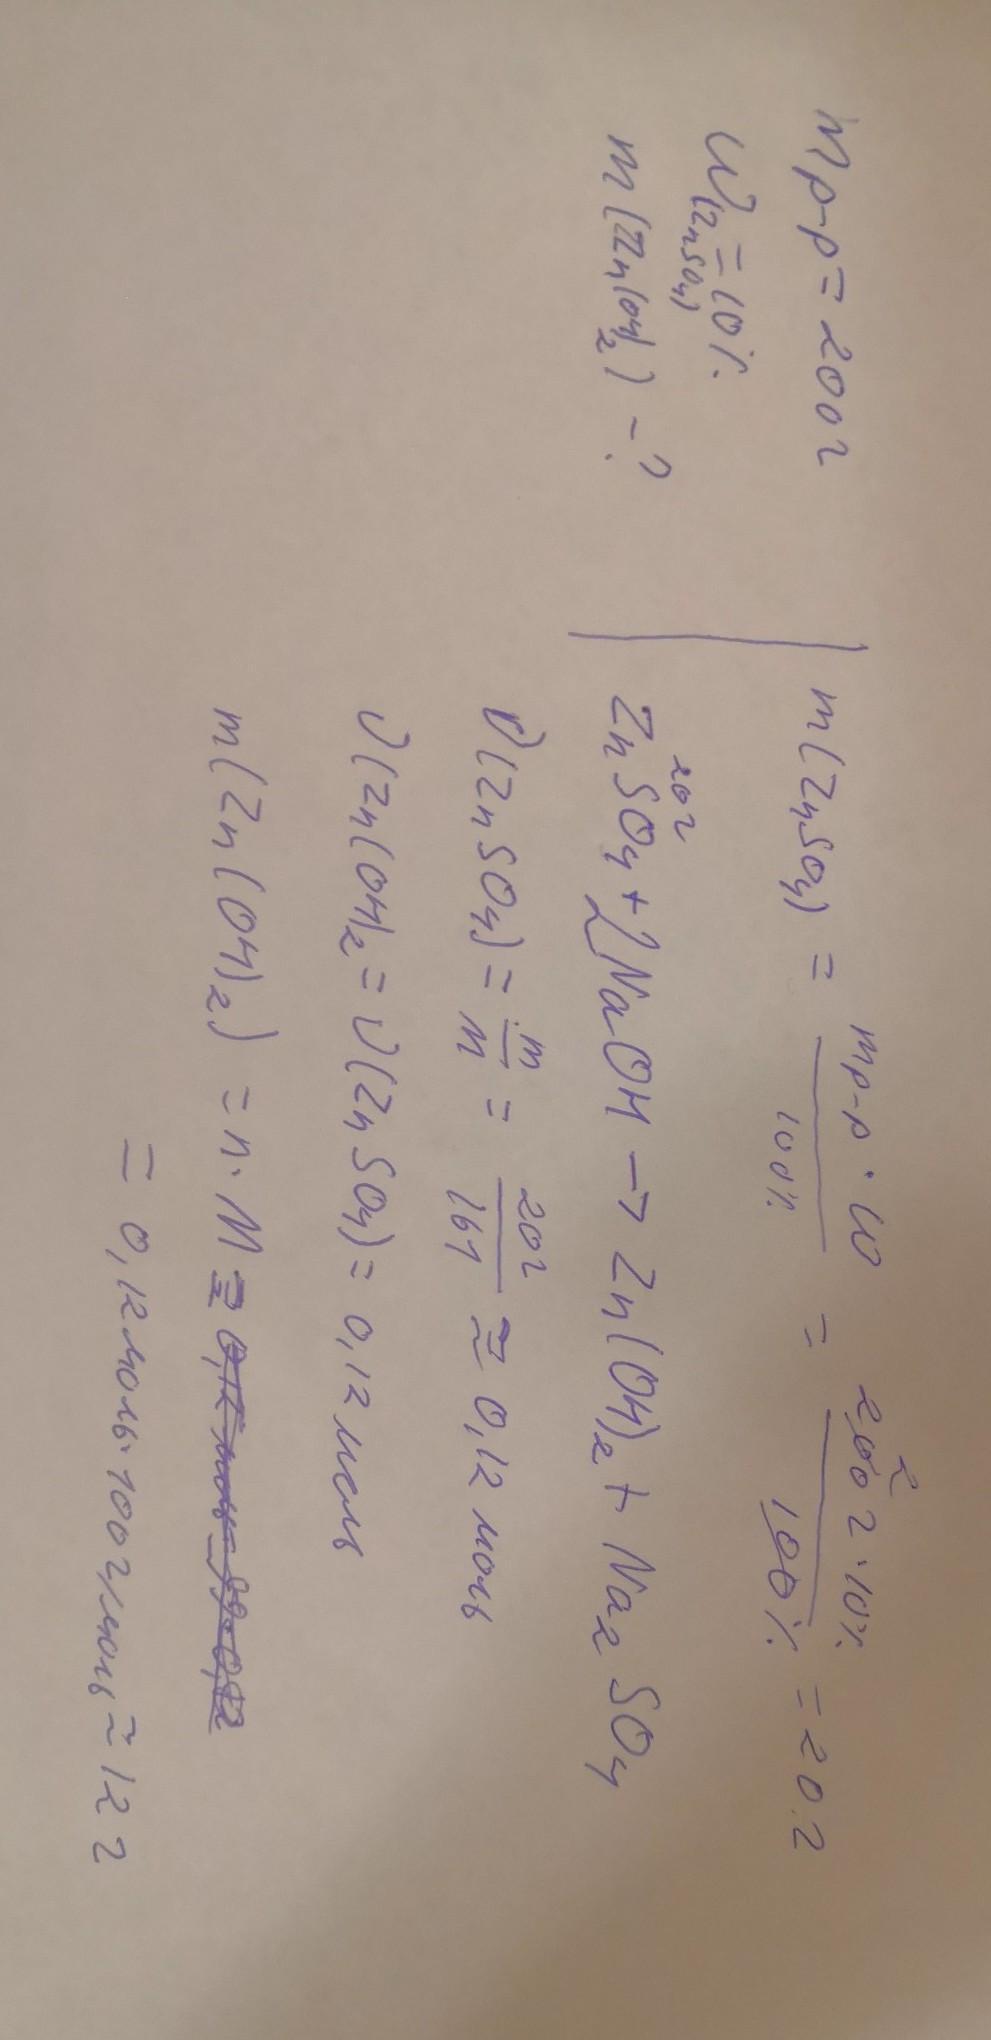 m р-р = 200 г
W(ZnSO4) = 10%
m(Zn(OH)2) - ?
m(ZnSO4) = mр-р · ω / 100% = 200 г · 10% / 100% = 20 г
20 г
ZnSO4 + 2NaOH → Zn(OH)2 + Na2SO4
ν(ZnSO4) = m / M = 20 г / 161 ≈ 0,12 моль
ν(Zn(OH)2 = ν(ZnSO4) = 0,12 моль
m(Zn(OH)2) = n · M =
= 0,12 моль · 100 г/моль ≈ 12 г